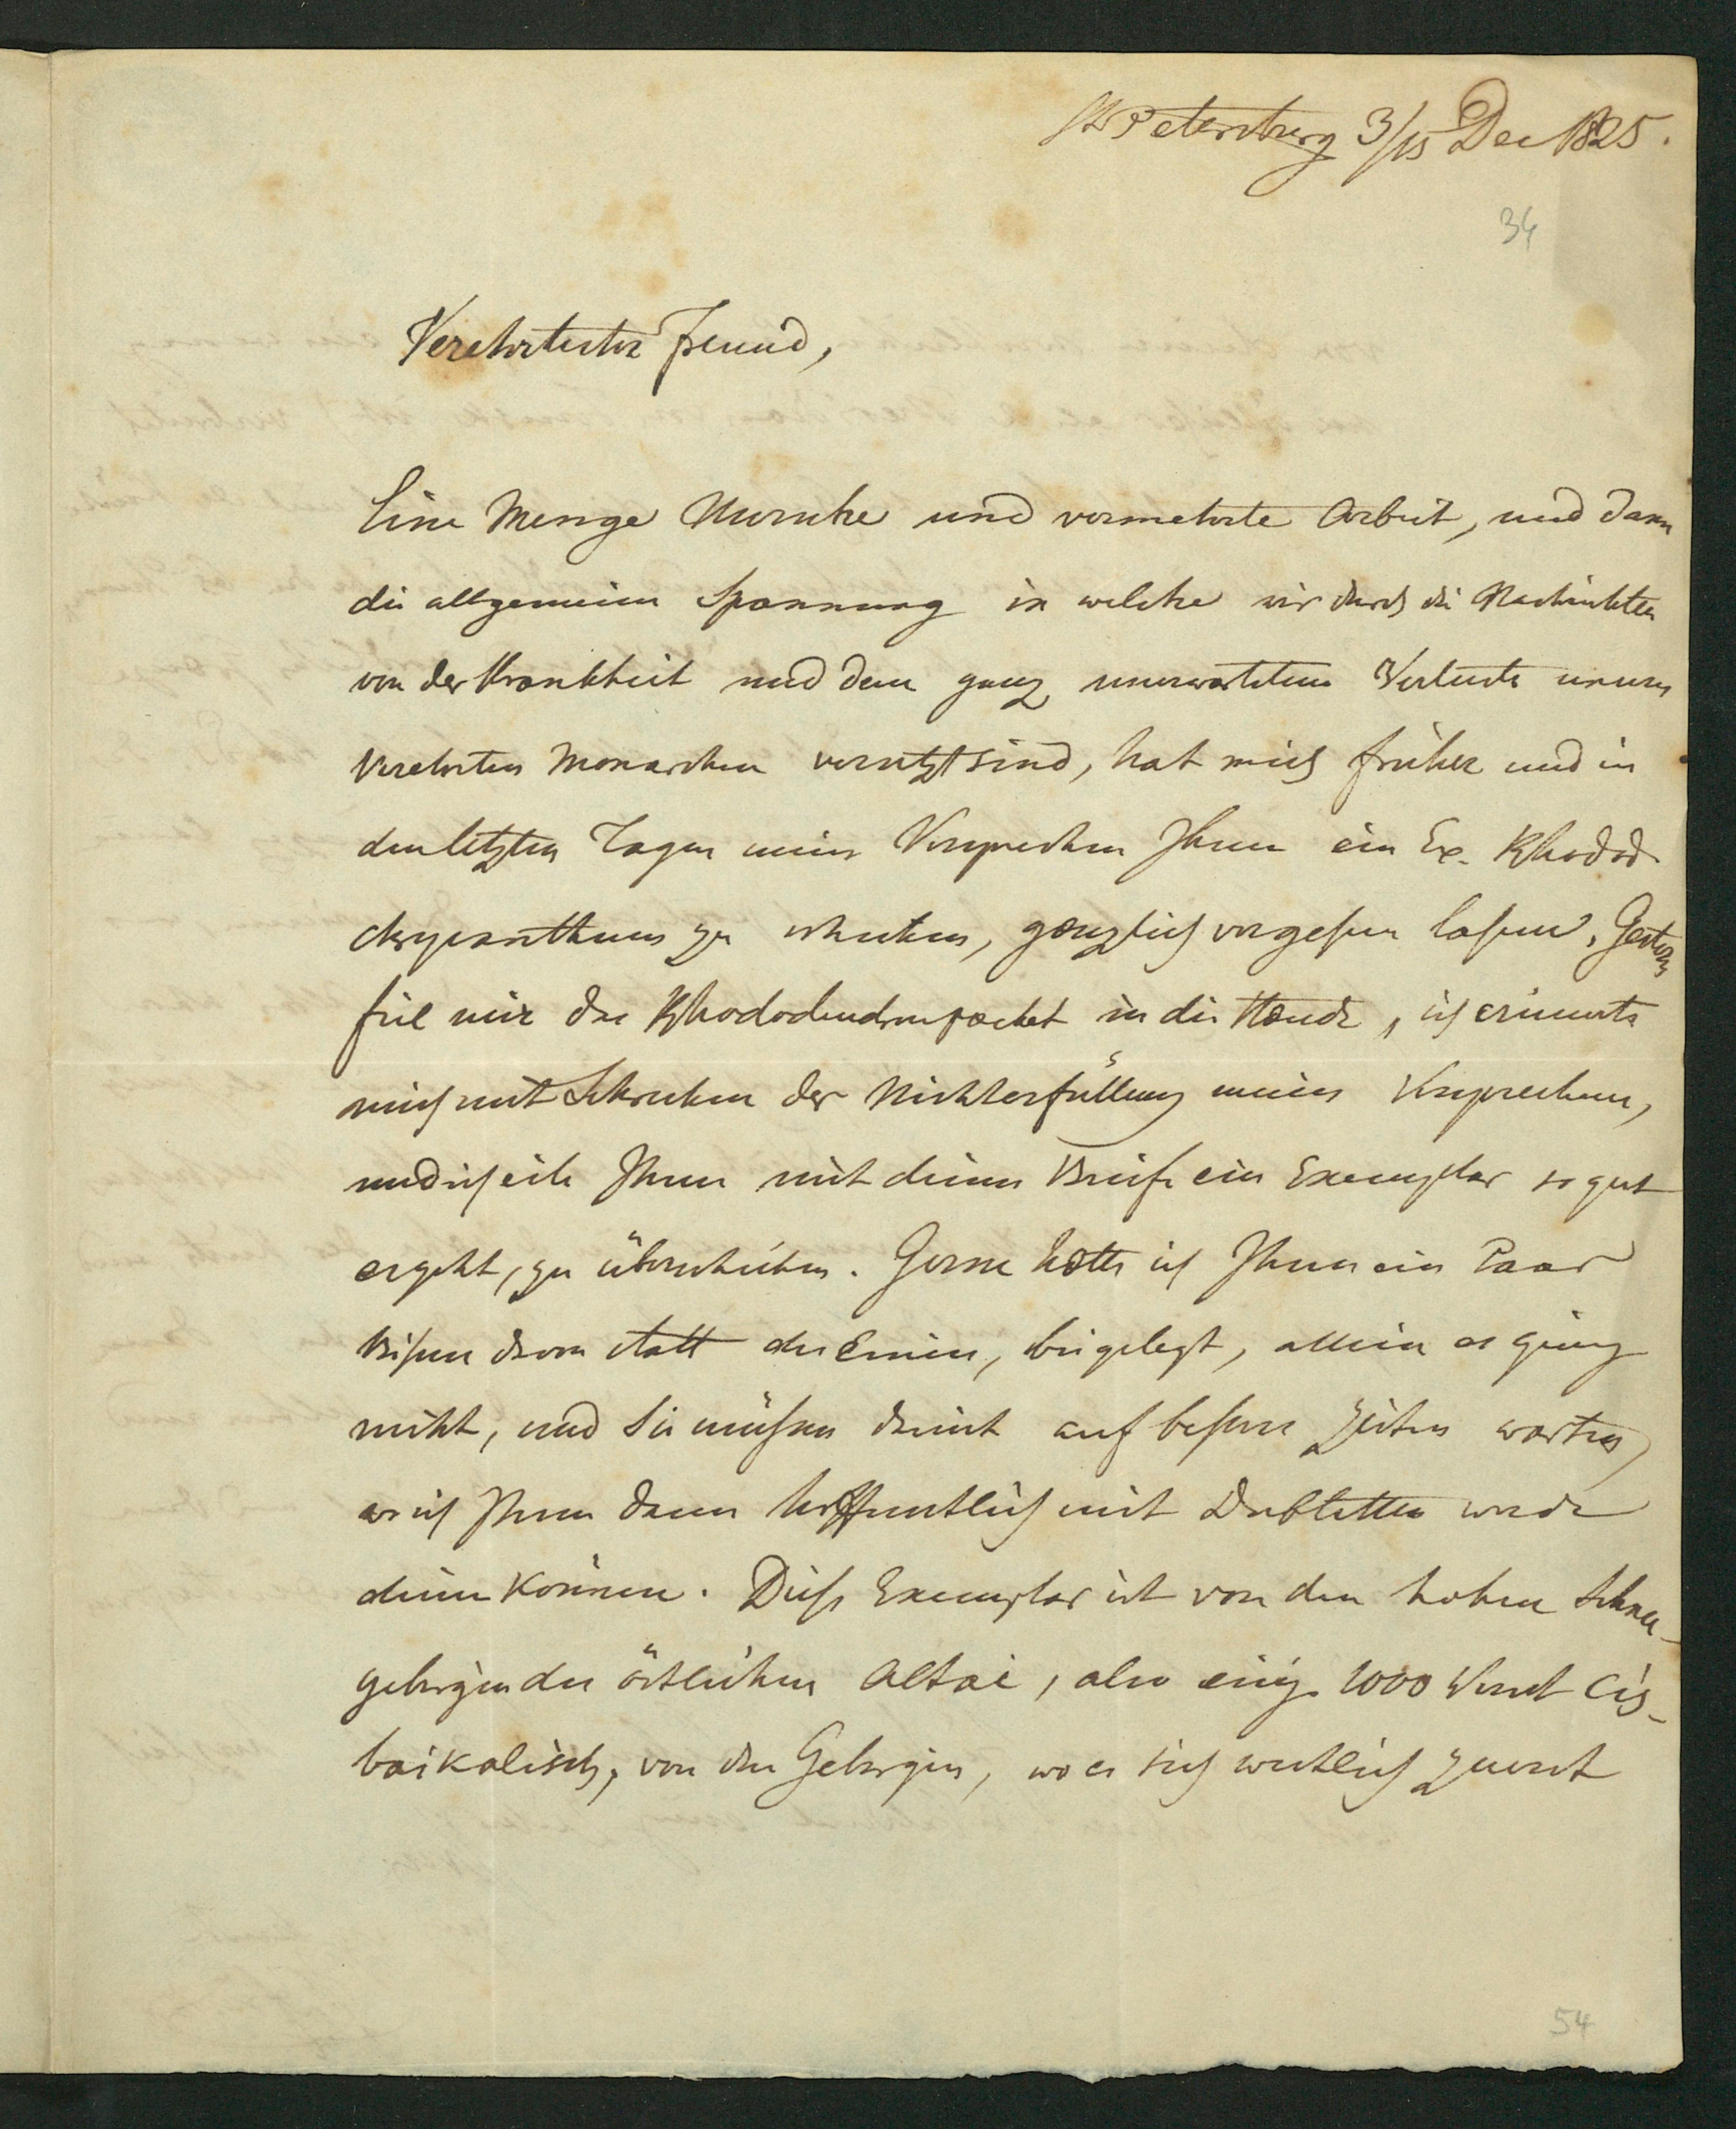 St Petersburg 3/15 Dec 1825.
34
Verehrtester Freund,
Eine Menge Unruhe und vermehrte Arbeit, und dann
die allgemeine Spannung in welche wir durch die Nachrichten
von der Krankheit und dem ganz unerwarteten Verluste unseres
verehrten Monarchen versetzt sind, hat mich früher und in
den letzten Tagen mein Versprechen Ihnen ein Ex. Rhodod.
chrysanthum zu schicken, gänzlich vergessen lassen. Gestern
fiel mir das Rhododendronpacket in die Hände, ich erinnerte
mich mit Schrecken der Nichterfüllung meines Versprechens,
und ich eile Ihnen mit diesem Briefe ein Exemplar so gut
es geht, zu überschicken. Gerne hätte ich Ihnen ein Paar
davon statt des Einen, beigelegt, allein es ging
nicht, und Sie müssen damit auf bessere Zeiten warten,
wo ich Ihnen dann hoffentlich mit Dubletten werde
dienen können. Diess Exemplar ist von den hohen Schnee-
gebirgen des östlichen Altai, also einige 1000 Werst Cis-
baikalisch, von den Gebirgen, wo es sich westlich zuerst
54